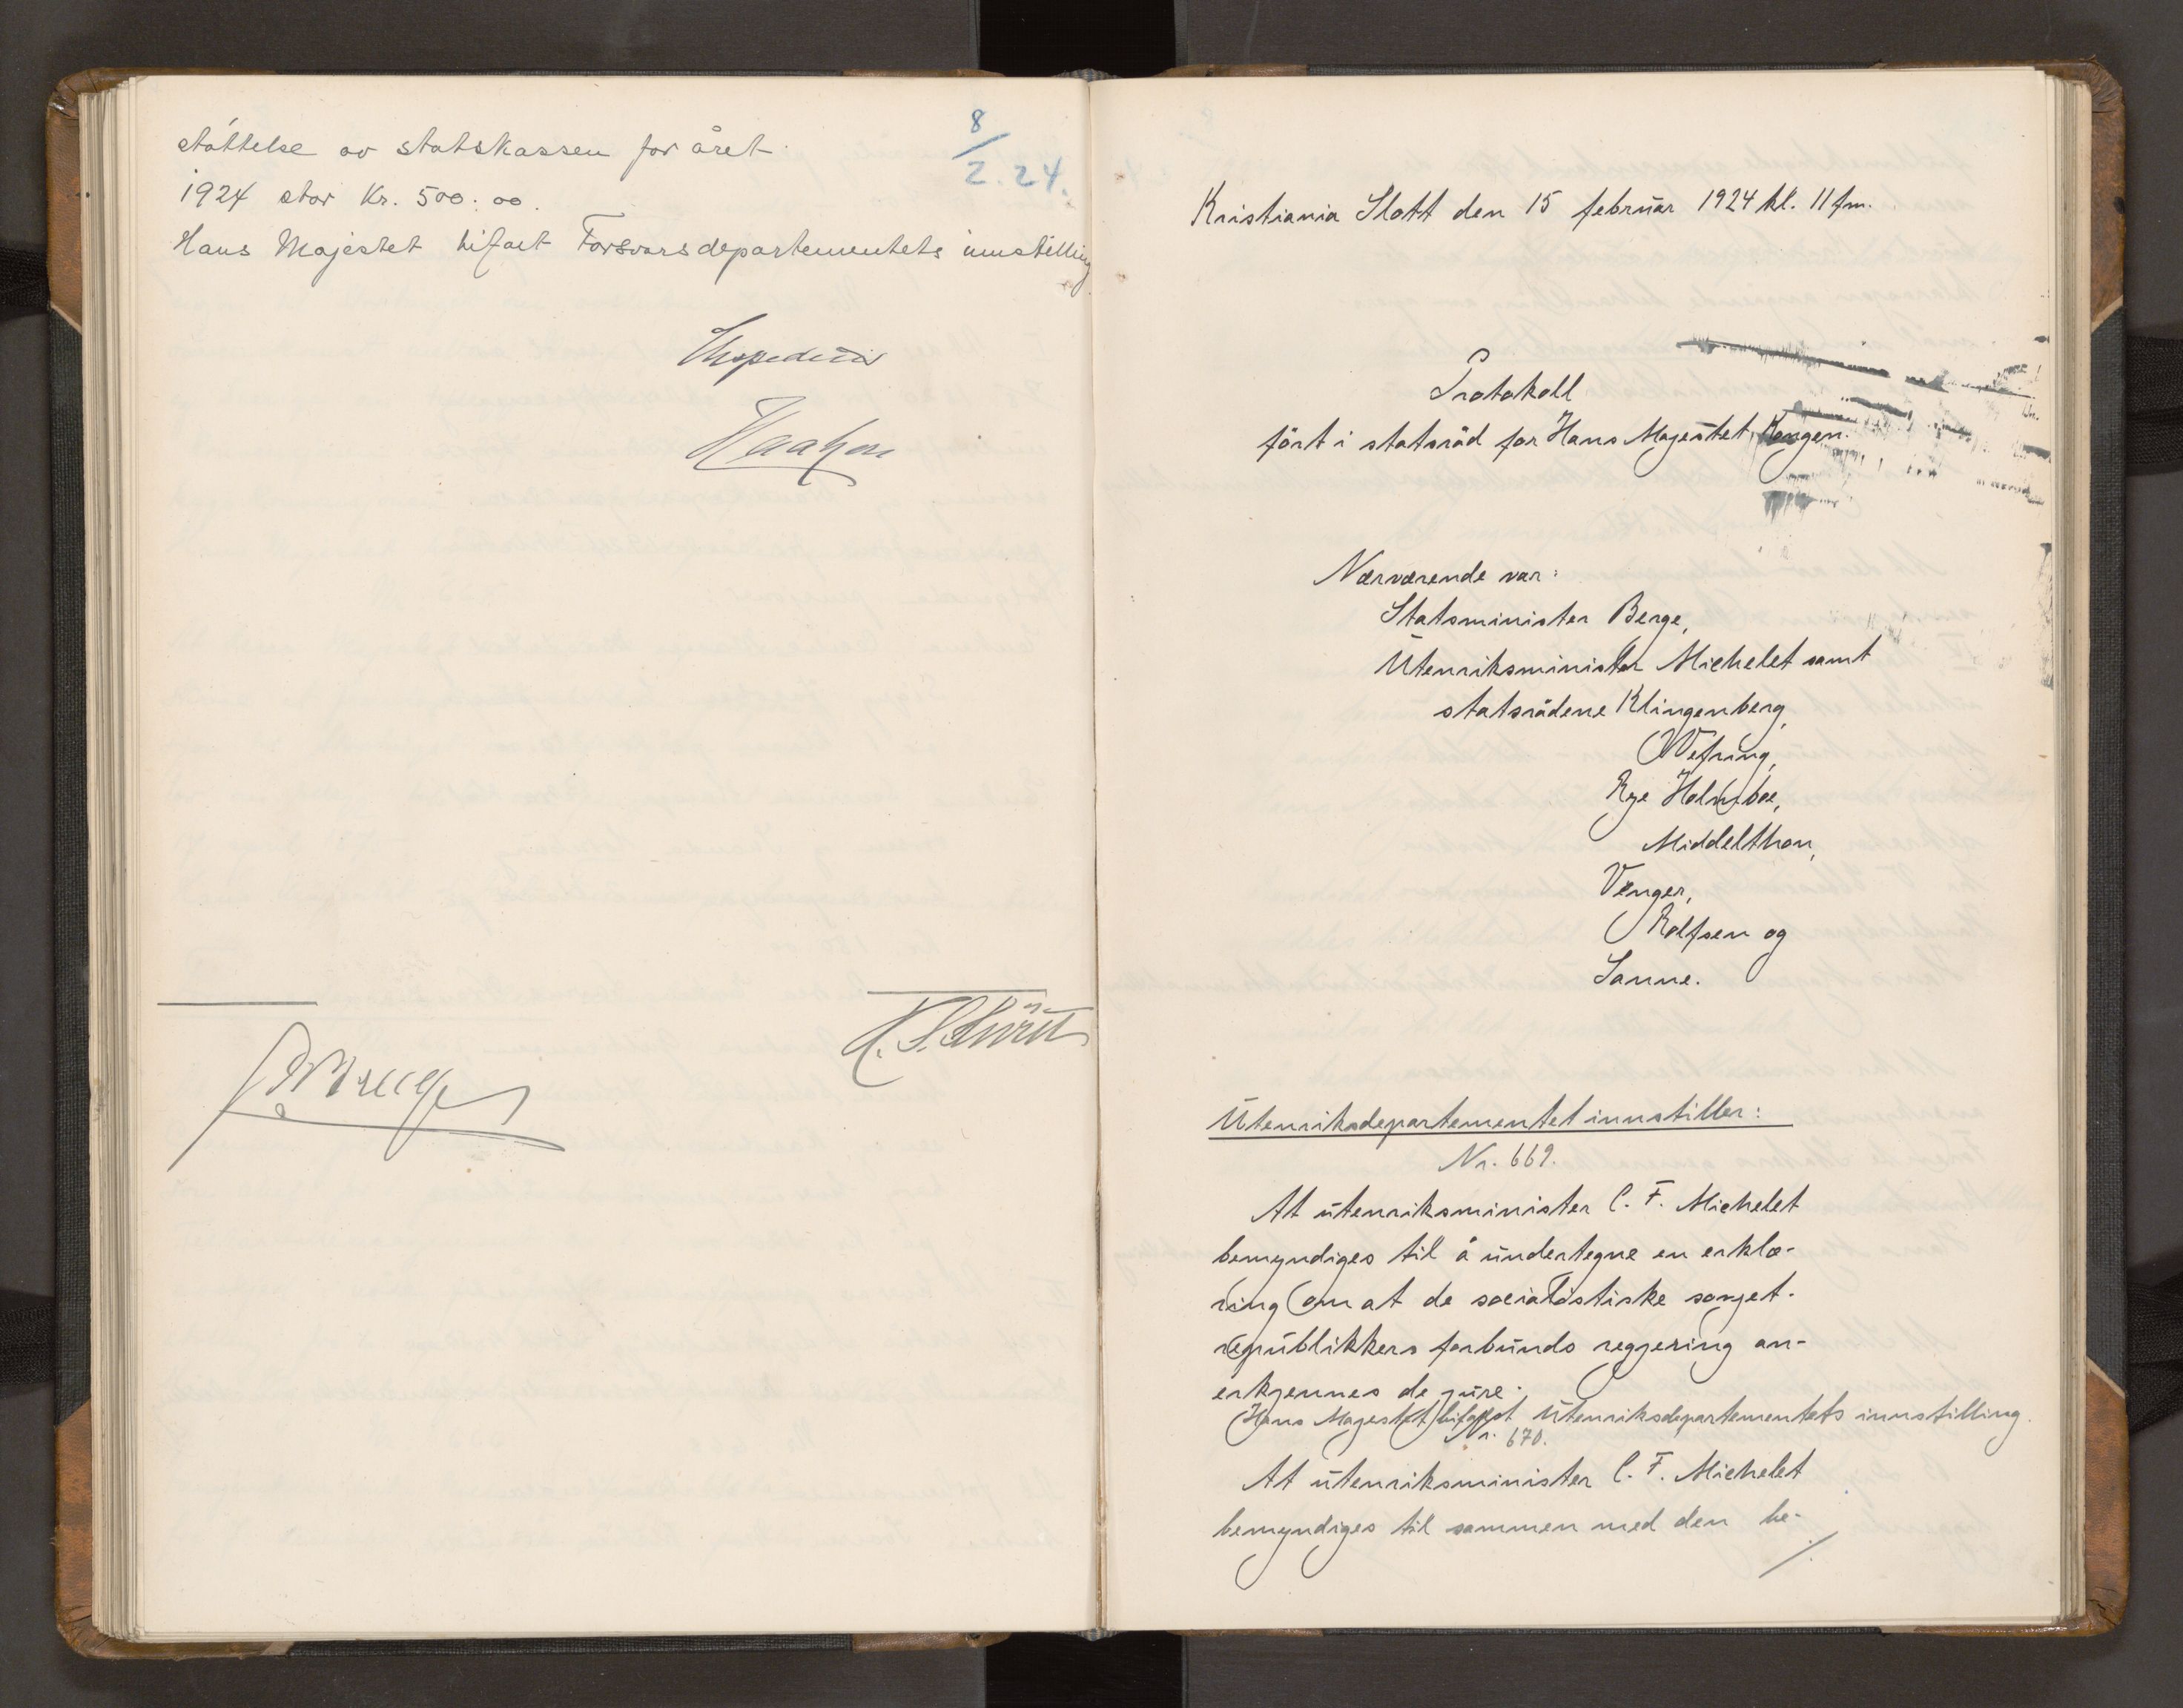 støttelse av statskassen for året
8/2.24.
1924 stor Kr. 500.00.
Hans Majestet bifalt Forsvarsdepartementets innstilling
Haakon
Kristiania Slott den 15 februar 1924 kl. 11 fm.
Protokoll
ført i statsråd for Hans Majestet Kongen.
Nærværende var:
Statsminister Berge,
Utenriksminister Michelet samt
statsrådene Klingenberg,
Wefring,
Rye Holmboe,
Middelthon,
Venger,
Rolfsen og
Sanne.
Utenriksdepartementet innstiller:
Nr. 669.
At utenriksminister C. F. Michelet
bemyndiges til å undertegne en erklæ-
ring om at de socialistiske sovjet-
republikkers forbunds regjering an-
erkjennes de jure.
Hans Majestet bifalt Utenriksdepartementets innstilling.
Nr. 670.
At utenriksminister C. F. Michelet
bemyndiges til sammen med den be-
./.